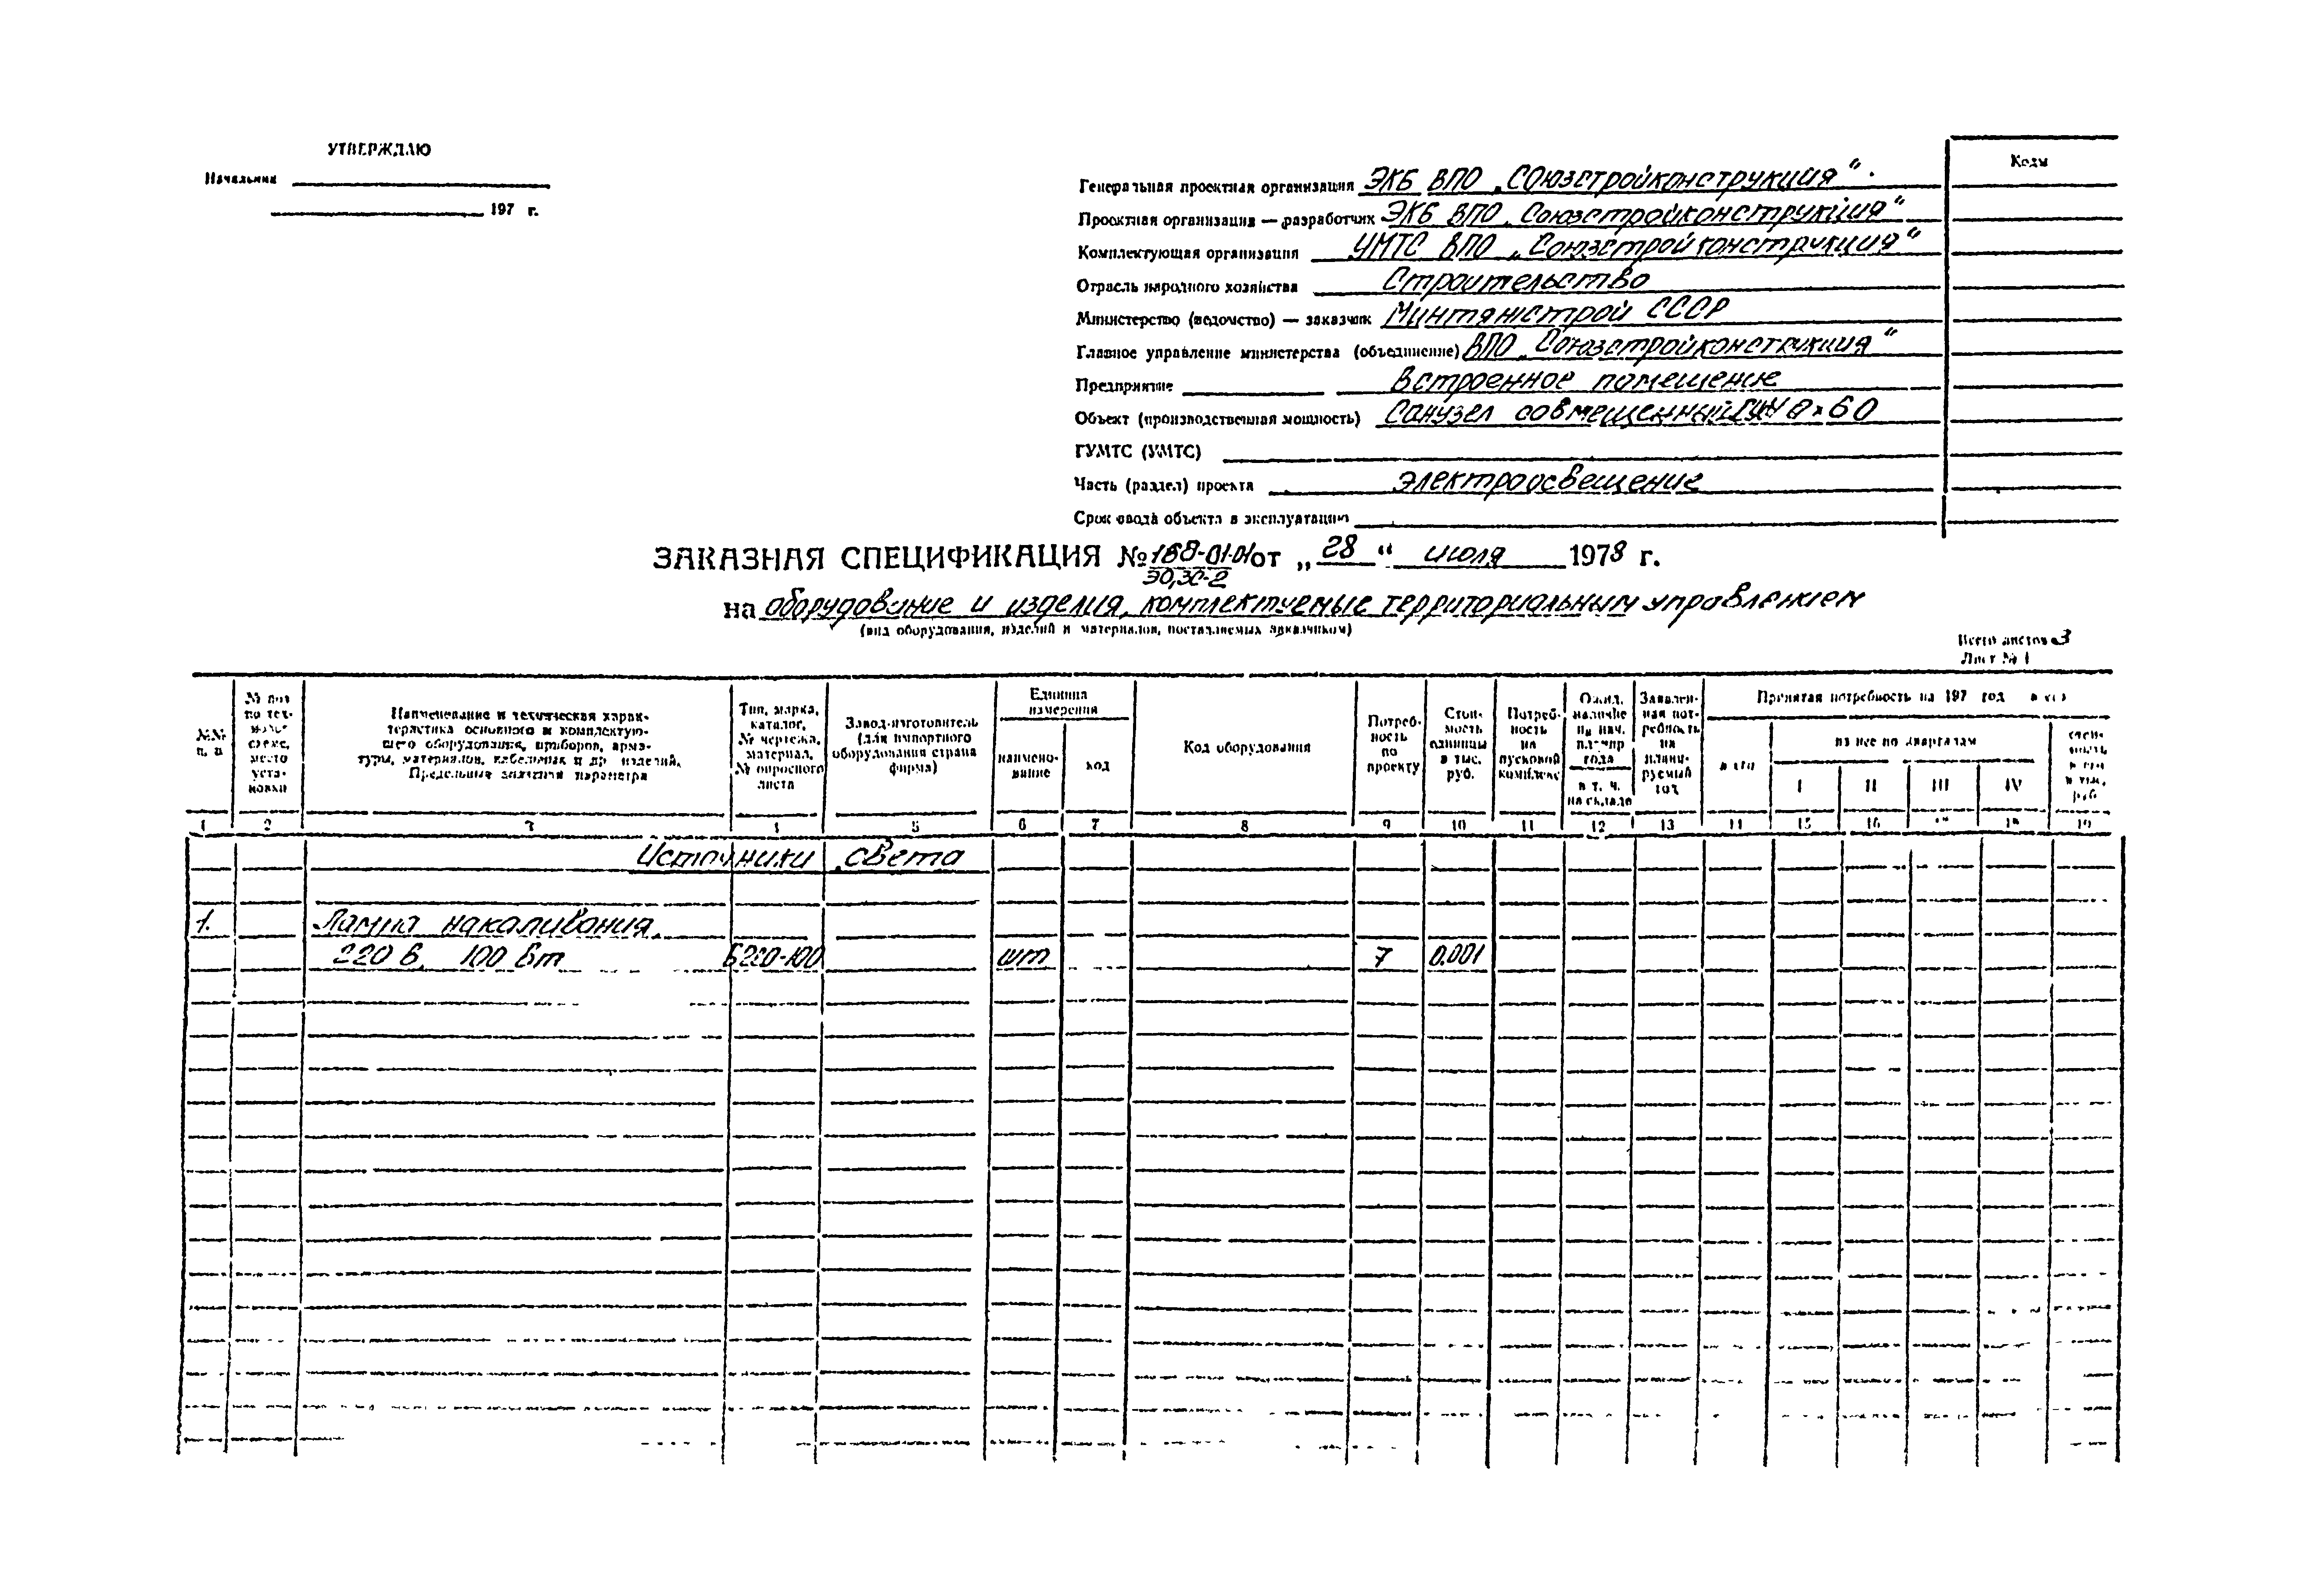 УТВЕРЖДАЮ
Начальник
197 г.
Коды
Генеральная проектная организация ЭКБ ВПО „Союзстройконструкция“
Проектная организация — разработчик ЭКБ ВПО „Союзстройконструкция“
Комплектующая организация УМТС ВПО „Союзстройконструкция“
Отрасль народного хозяйства Строительство
Министерство (ведомство) — заказчик Минтяжстрой СССР
Главное управление министерства (объединение) ВПО „Союзстройконструкция“
Предприятие Встроенное помещение
Объект (производственная мощность) Санузел совмещенный
ГУМТС (УМТС)
Часть (раздел) проекта Электроосвещение
Срок ввода объекта в эксплуатацию
ЗАКАЗНАЯ СПЕЦИФИКАЦИЯ № от „28“ июля 1978 г.
на оборудование и изделия, комплектуемые территориальным управлением
(вид оборудования, изделий и материалов, поставляемых заказчиком)
Всего листов 3
Лист № 1
№№ п. п
№ поз по тех- схеме, место уста- новки
Наименование и техническая харак-
теристика основного и комплектую-
щего оборудования, приборов, арма-
туры, материалов, кабельных и др изделий.
Предельные значения параметра
Тип, марка,
каталог,
№ чертежа,
материал,
№ опросного
листа
Завод-изготовитель
(для импортного
оборудования страна
фирма)
Единица
измерения
наимено-
вание
код
Код оборудования
Потреб-
ность
по
проекту
Стои-
мость
единицы
в тыс.
руб.
Потреб-
ность
на
пусковой
комплекс
Ожид.
наличие
на нач.
планир
года
в т. ч.
на складе
Заявлен-
ная пот-
ребность
на
плани-
руемый
год
Принятая потребность на 197 год
из нее по кварталам
I II III IV
1 2 3 4 5 6 7 8 9 10 11 12 13 14 15 16 17 18 19
Источники света
1. Лампа накаливания
220 в, 100 вт Б220-100 шт 7 0.001